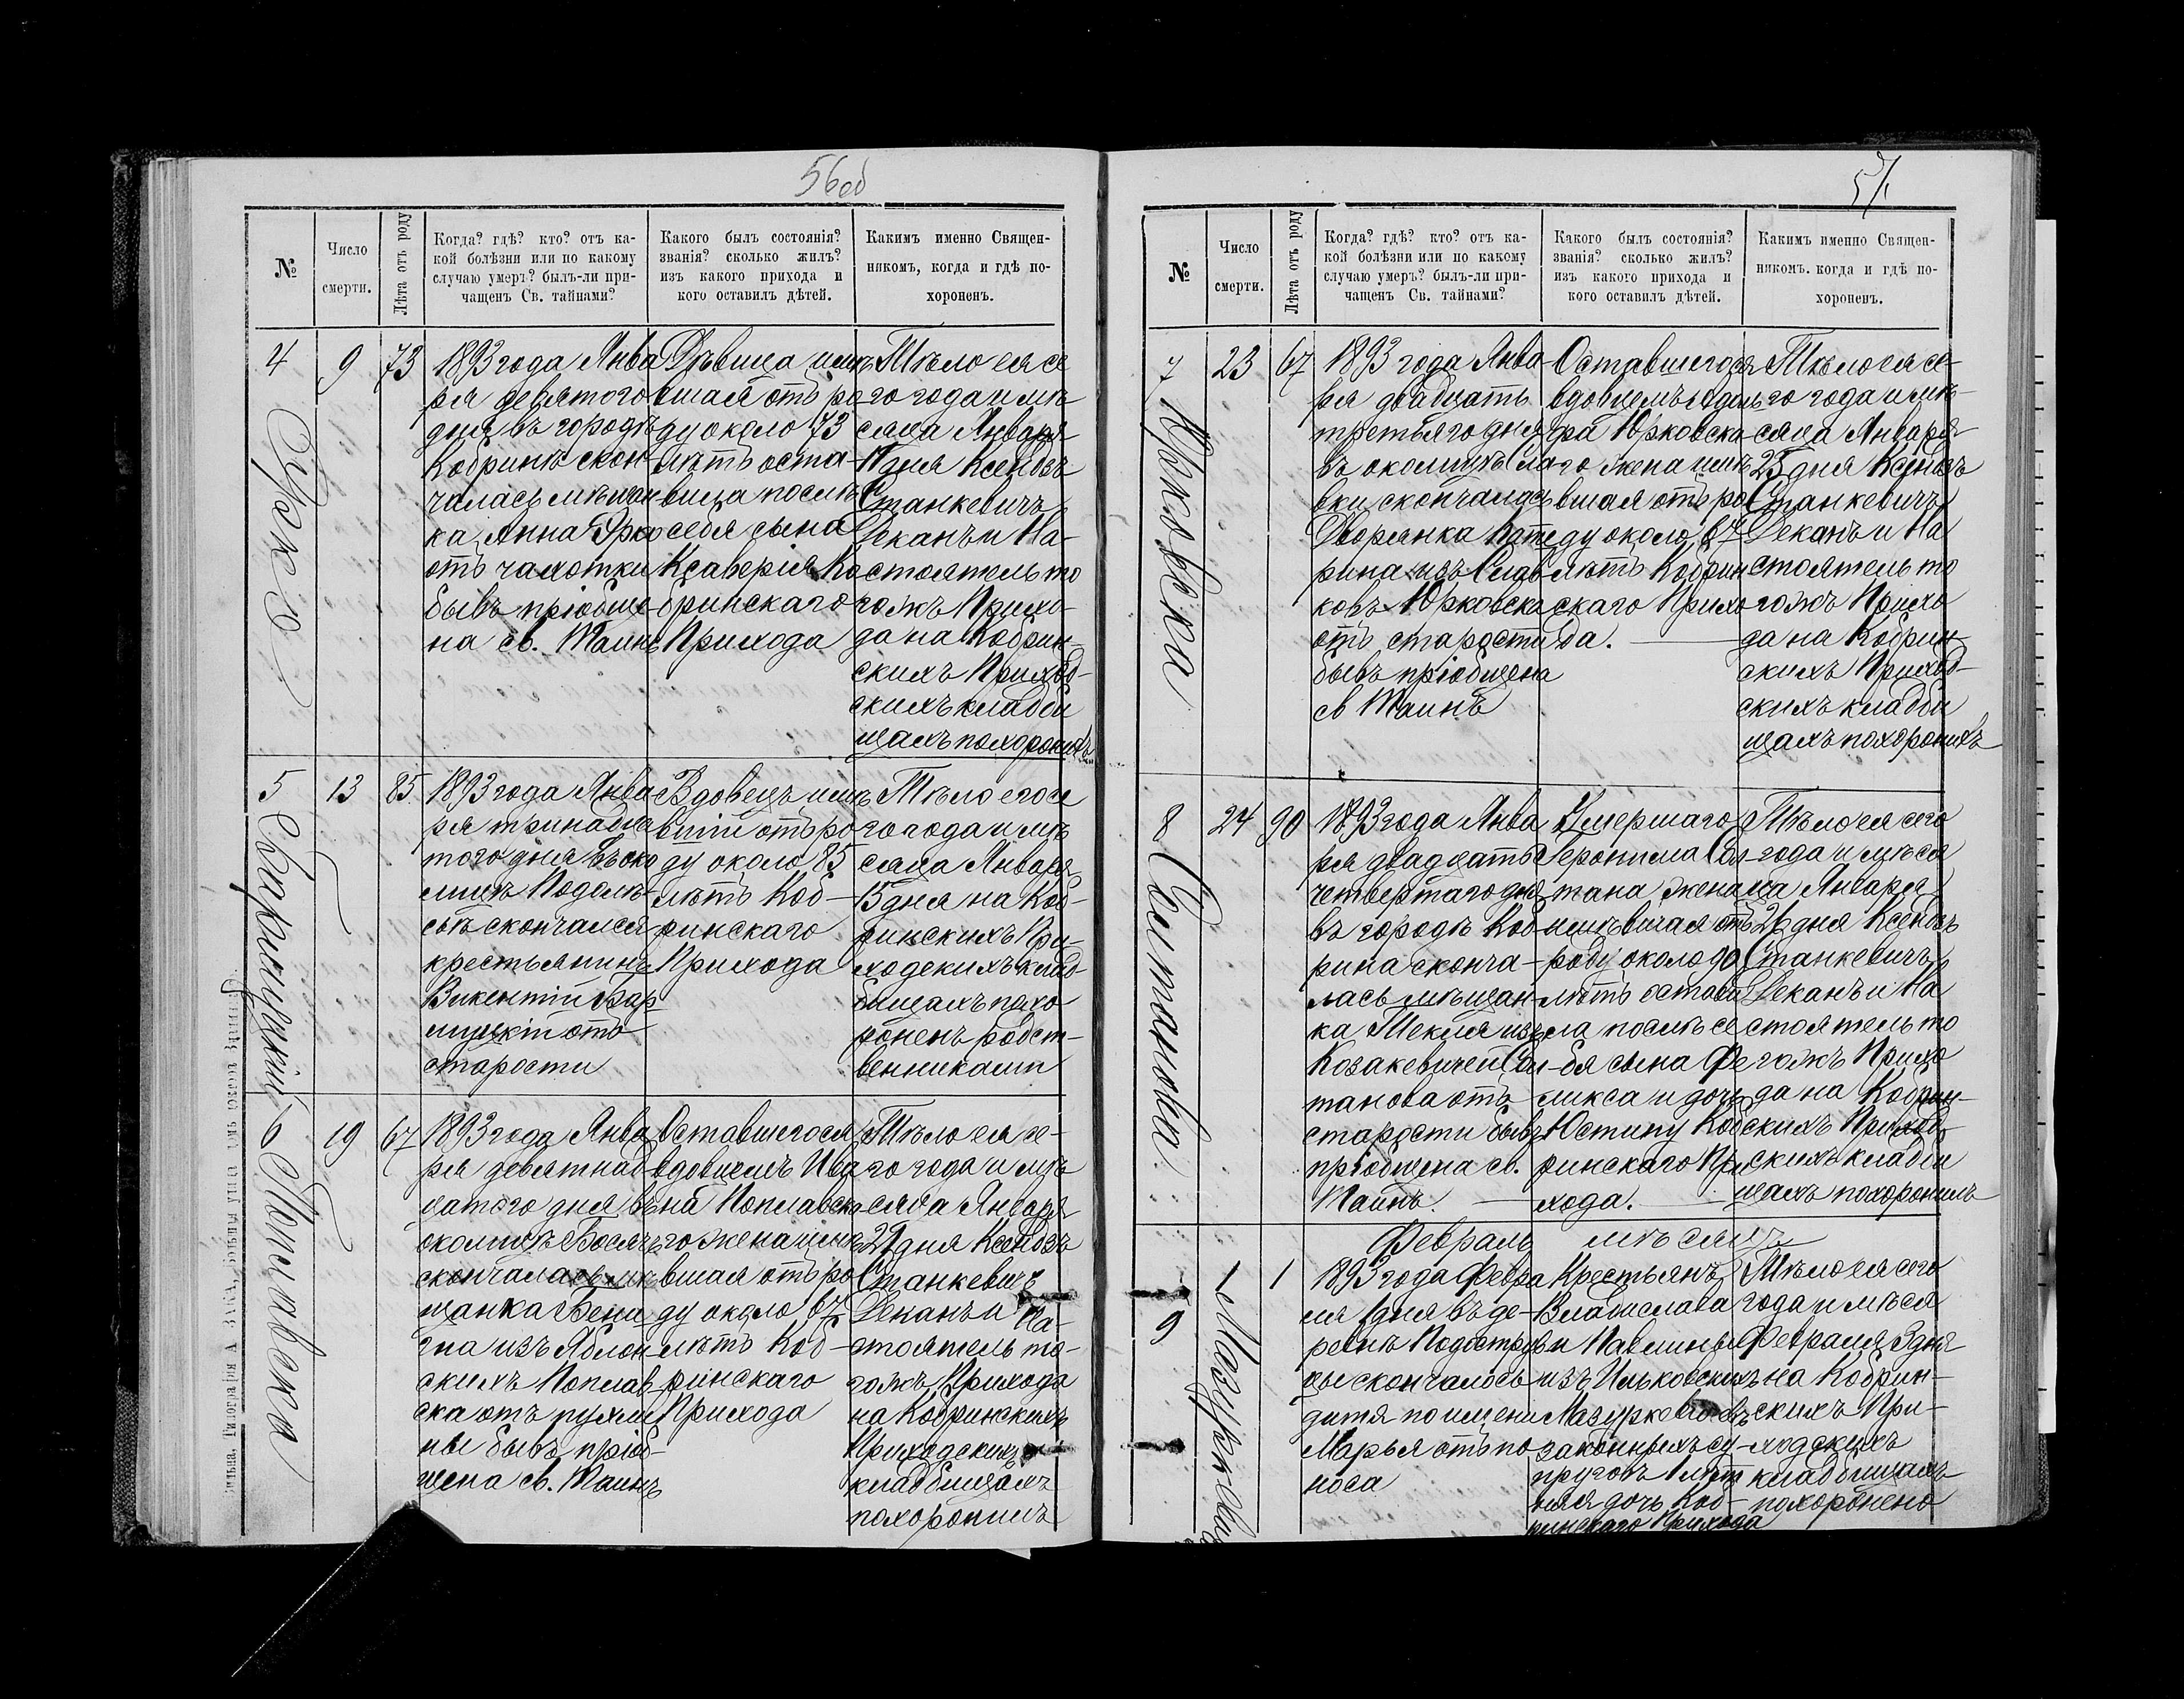 56об
№
Число
смерти.
Лѣта отъ роду
Когда? гдѣ? кто? отъ ка-
кой болѣзни или по какому
случаю умеръ? былъ-ли при-
чащенъ Св. тайнами?
Какого былъ состоянія?
званія? сколько жилъ?
изъ какого прихода и
кого оставилъ дѣтей.
Какимъ именно Священ-
никомъ, когда и гдѣ по-
хороненъ.
4
9
73
1893 года Янва
ря девятого
дня въ городѣ
Кобринѣ скон-
чалась мѣщан
ка Анна
отъ чахотки
бывъ пріобще-
на св. Таинъ
Дѣвица имѣ
вшая отъ ро
ду около 73
лѣтъ оста-
вила послѣ
себя сына
Ксаверія Ко
бринскаго
Прихода
Тѣло ея се
го года и мѣ
сяца Января
11 дня Ксендзъ
Станкевичъ
Деканъ и На-
стоятель то
гожъ Прихо-
да на Кобрин-
скихъ Приход-
скихъ кладби
щахъ похоронилъ
5
Барщицкій
13
85
1893 года Янва
ря тринадца
того дня въ око
лицѣ Подолѣ-
сьѣ скончался
крестьянинъ
Викентій Бар
щицкій отъ
старости
Вдовецъ имѣ
вшій отъ ро
ду около 85
лѣтъ Коб-
ринскаго
Прихода
Тѣло его се
го года и мѣ
сяца Января
15 дня на Коб-
ринскихъ При-
ходскихъ клад-
бищахъ похо
роненъ родст-
венниками
6
Поплавска
19
67
1893 года Янва
ря девятнад
цатого дня въ
околицѣ Босячъ
скончалась мѣ
щанка Бени
гна изъ Яблон
скихъ Поплав
ска отъ пухли
ны бывъ пріоб-
щена св. Таинъ
Оставшегося
вдовцемъ Ива
на Поплавска
го жена имѣ
вшая отъ ро
ду около 67
лѣтъ Коб-
ринскаго
Прихода
Тѣло ея се-
го года и мѣ
сяца Января
21 дня Ксендзъ
Станкевичъ
Деканъ и На-
стоятель то-
гожъ Прихода
на Кобринскихъ
Приходскихъ
кладбищахъ
похоронилъ
57
№
Число
смерти.
Лѣта отъ роду
Когда? гдѣ? кто? отъ ка-
кой болѣзни или по какому
случаю умеръ? былъ-ли при-
чащенъ Св. тайнами?
Какого былъ состоянія?
званія? сколько жилъ?
изъ какого прихода и
кого оставилъ дѣтей.
Какимъ именно Священ-
никомъ. когда и гдѣ по-
хороненъ.
7
Юрковска
23
67
1893 года Янва-
ря двадцать
третьяго дня
въ околицѣ
вки скончалась
Дворянка Кате
рина изъ
ковъ Юрковска
отъ старости
бывъ пріобщена
св Таинъ
Оставшегося
вдовцемъ Эдмун
да Юрковска-
го жена имѣ
вшая отъ ро
ду около 67
лѣтъ Кобрин
скаго Прихо
да.
Тѣло ея се-
го года и мѣ-
сяца Января
25 дня Ксендзъ
Станкевичъ
Деканъ и На
стоятель то
гожъ Прихо
да на Кобрин-
скихъ Приход-
скихъ кладби
щахъ похоронилъ
8
Солтанова
24
90
1893 года Янва
ря двадцать
четвертаго дня
въ городѣ Коб
рина сконча-
лась мѣщан-
ка Текля изъ
Козакевичей Сол-
танова отъ
старости бывъ
пріобщена св.
Таинъ.
Умершаго
Іеронима Сол-
тана жена
имѣвшая отъ
роду около 90
лѣтъ остави
ла послѣ се
бя сына Фе
ликса и дочь
Юстину Коб
ринскаго При
хода.
Тѣло ея сего
года и мѣся
ца Января
26 дня Ксендзъ
Станкевичъ
Деканъ и На
стоятель то
гожъ Прихо
да на Кобрин-
скихъ Приход-
скихъ кладби
щахъ похоронилъ
Февраль мѣсяцъ
9
1
1
1893 года Февра
ля 1 дня въ де-
ревнѣ
скончалось
дитя по имени
Марья отъ по
носа
Крестьянъ
Владислава
и Павлины
изъ Ильковскихъ
Мазуркевичевъ
законныхъ су-
пруговъ 1 лѣт
няя дочь Коб-
ринскаго Прихода
Тѣло ея сего
года и мѣся
Февраля 3 дня
на Кобрин-
скихъ При-
ходскихъ
кладбищахъ
похоронено